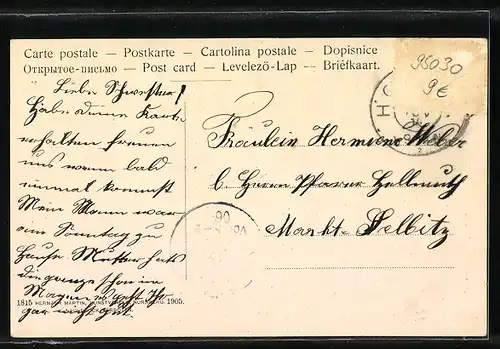 Carte postale — Postkarte — Cartolina postale — Dopisnice
Открытое-письмо — Post card — Levelező-Lap — Briefkaart.
95030
9€
Liebe Schwester!
Habe deine Karte
erhalten freuen
uns wenn bald
einmal kommst
Mein Mann war
am Sonntag zu
Hause Mutter hats
die ganze schon im
Magen es geht Ihr
gar nicht gut.
Fräulein Hermine Weber
b. Herrn Pfarrer Hellmuth
Markt-Selbitz
1815 HERMANN MARTIN, KUNSTVERLAG, NÜRNBERG. 1905.